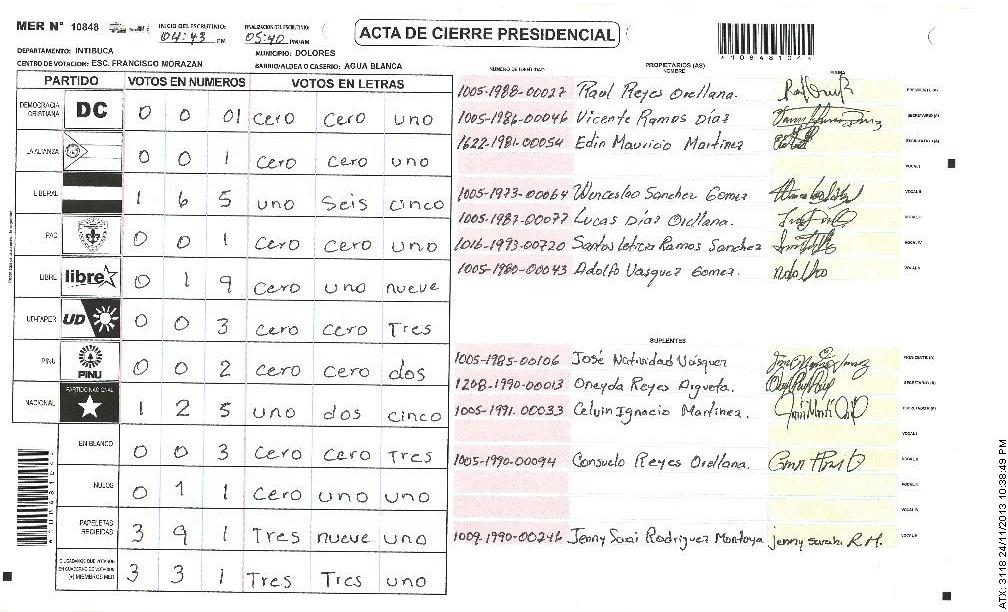 MER N° 10848
INICIO DEL ESCRUTINIO: 04:43 PM
FINALIZACION DEL ESCRUTINIO: 05:40 PM/AM
ACTA DE CIERRE PRESIDENCIAL
*10848104*
DEPARTAMENTO: INTIBUCA
MUNICIPIO: DOLORES
CENTRO DE VOTACION: ESC. FRANCISCO MORAZAN
BARRIO/ALDEA O CASERIO: AGUA BLANCA
PARTIDO VOTOS EN NUMEROS VOTOS EN LETRAS
DEMOCRACIA CRISTIANA DC 0 0 01 cero cero uno
LA ALIANZA 0 0 1 cero cero uno
LIBERAL 1 6 5 uno seis cinco
PAC 0 0 1 cero cero uno
LIBRE libre 0 1 9 cero uno nueve
UD-FAPER UD 0 0 3 cero cero Tres
PINU PINU 0 0 2 cero cero dos
NACIONAL PARTIDO NACIONAL 1 2 5 uno dos cinco
EN BLANCO 0 0 3 cero cero Tres
NULOS 0 1 1 cero uno uno
PAPELETAS RECIBIDAS 3 9 1 Tres nueve uno
CIUDADANOS QUE VOTARON EN CUADERNO DE VOTACION (+) MIEMBROS MER 3 3 1 Tres Tres uno
NUMERO DE IDENTIDAD PROPIETARIOS (AS) NOMBRE FIRMA
1005-1988-00027 Raul Reyes Orellana. PRESIDENTE (A)
1005-1986-00046 Vicente Ramos Díaz SECRETARIO (A)
1622-1981-00054 Edin Mauricio Martinez ESCRUTADOR (A)
VOCAL I
1005-1973-00064 Wenceslao Sanchez Gomez VOCAL II
1005-1987-00077 Lucas Díaz Orellana. VOCAL III
1016-1993-00720 Santos Leticia Ramos Sanchez VOCAL IV
1005-1980-00043 Adolfo Vasquez Gomez. VOCAL V
SUPLENTES
1005-1985-00106 José Natividad Vásquez PRESIDENTE (A)
1208-1990-00013 Oneyda Reyes Argueta. SECRETARIO (A)
1005-1991-00033 Celvin Ignacio Martinez. ESCRUTADOR (A)
VOCAL I
1005-1990-00094 Consuelo Reyes Orellana. VOCAL II
VOCAL III
VOCAL IV
1009-1990-00246 Jenny Sarai Rodriguez Montoya jenny sarahi R.M. VOCAL V
*10848104*
ATX: 3118 24/11/2013 10:38:49 PM